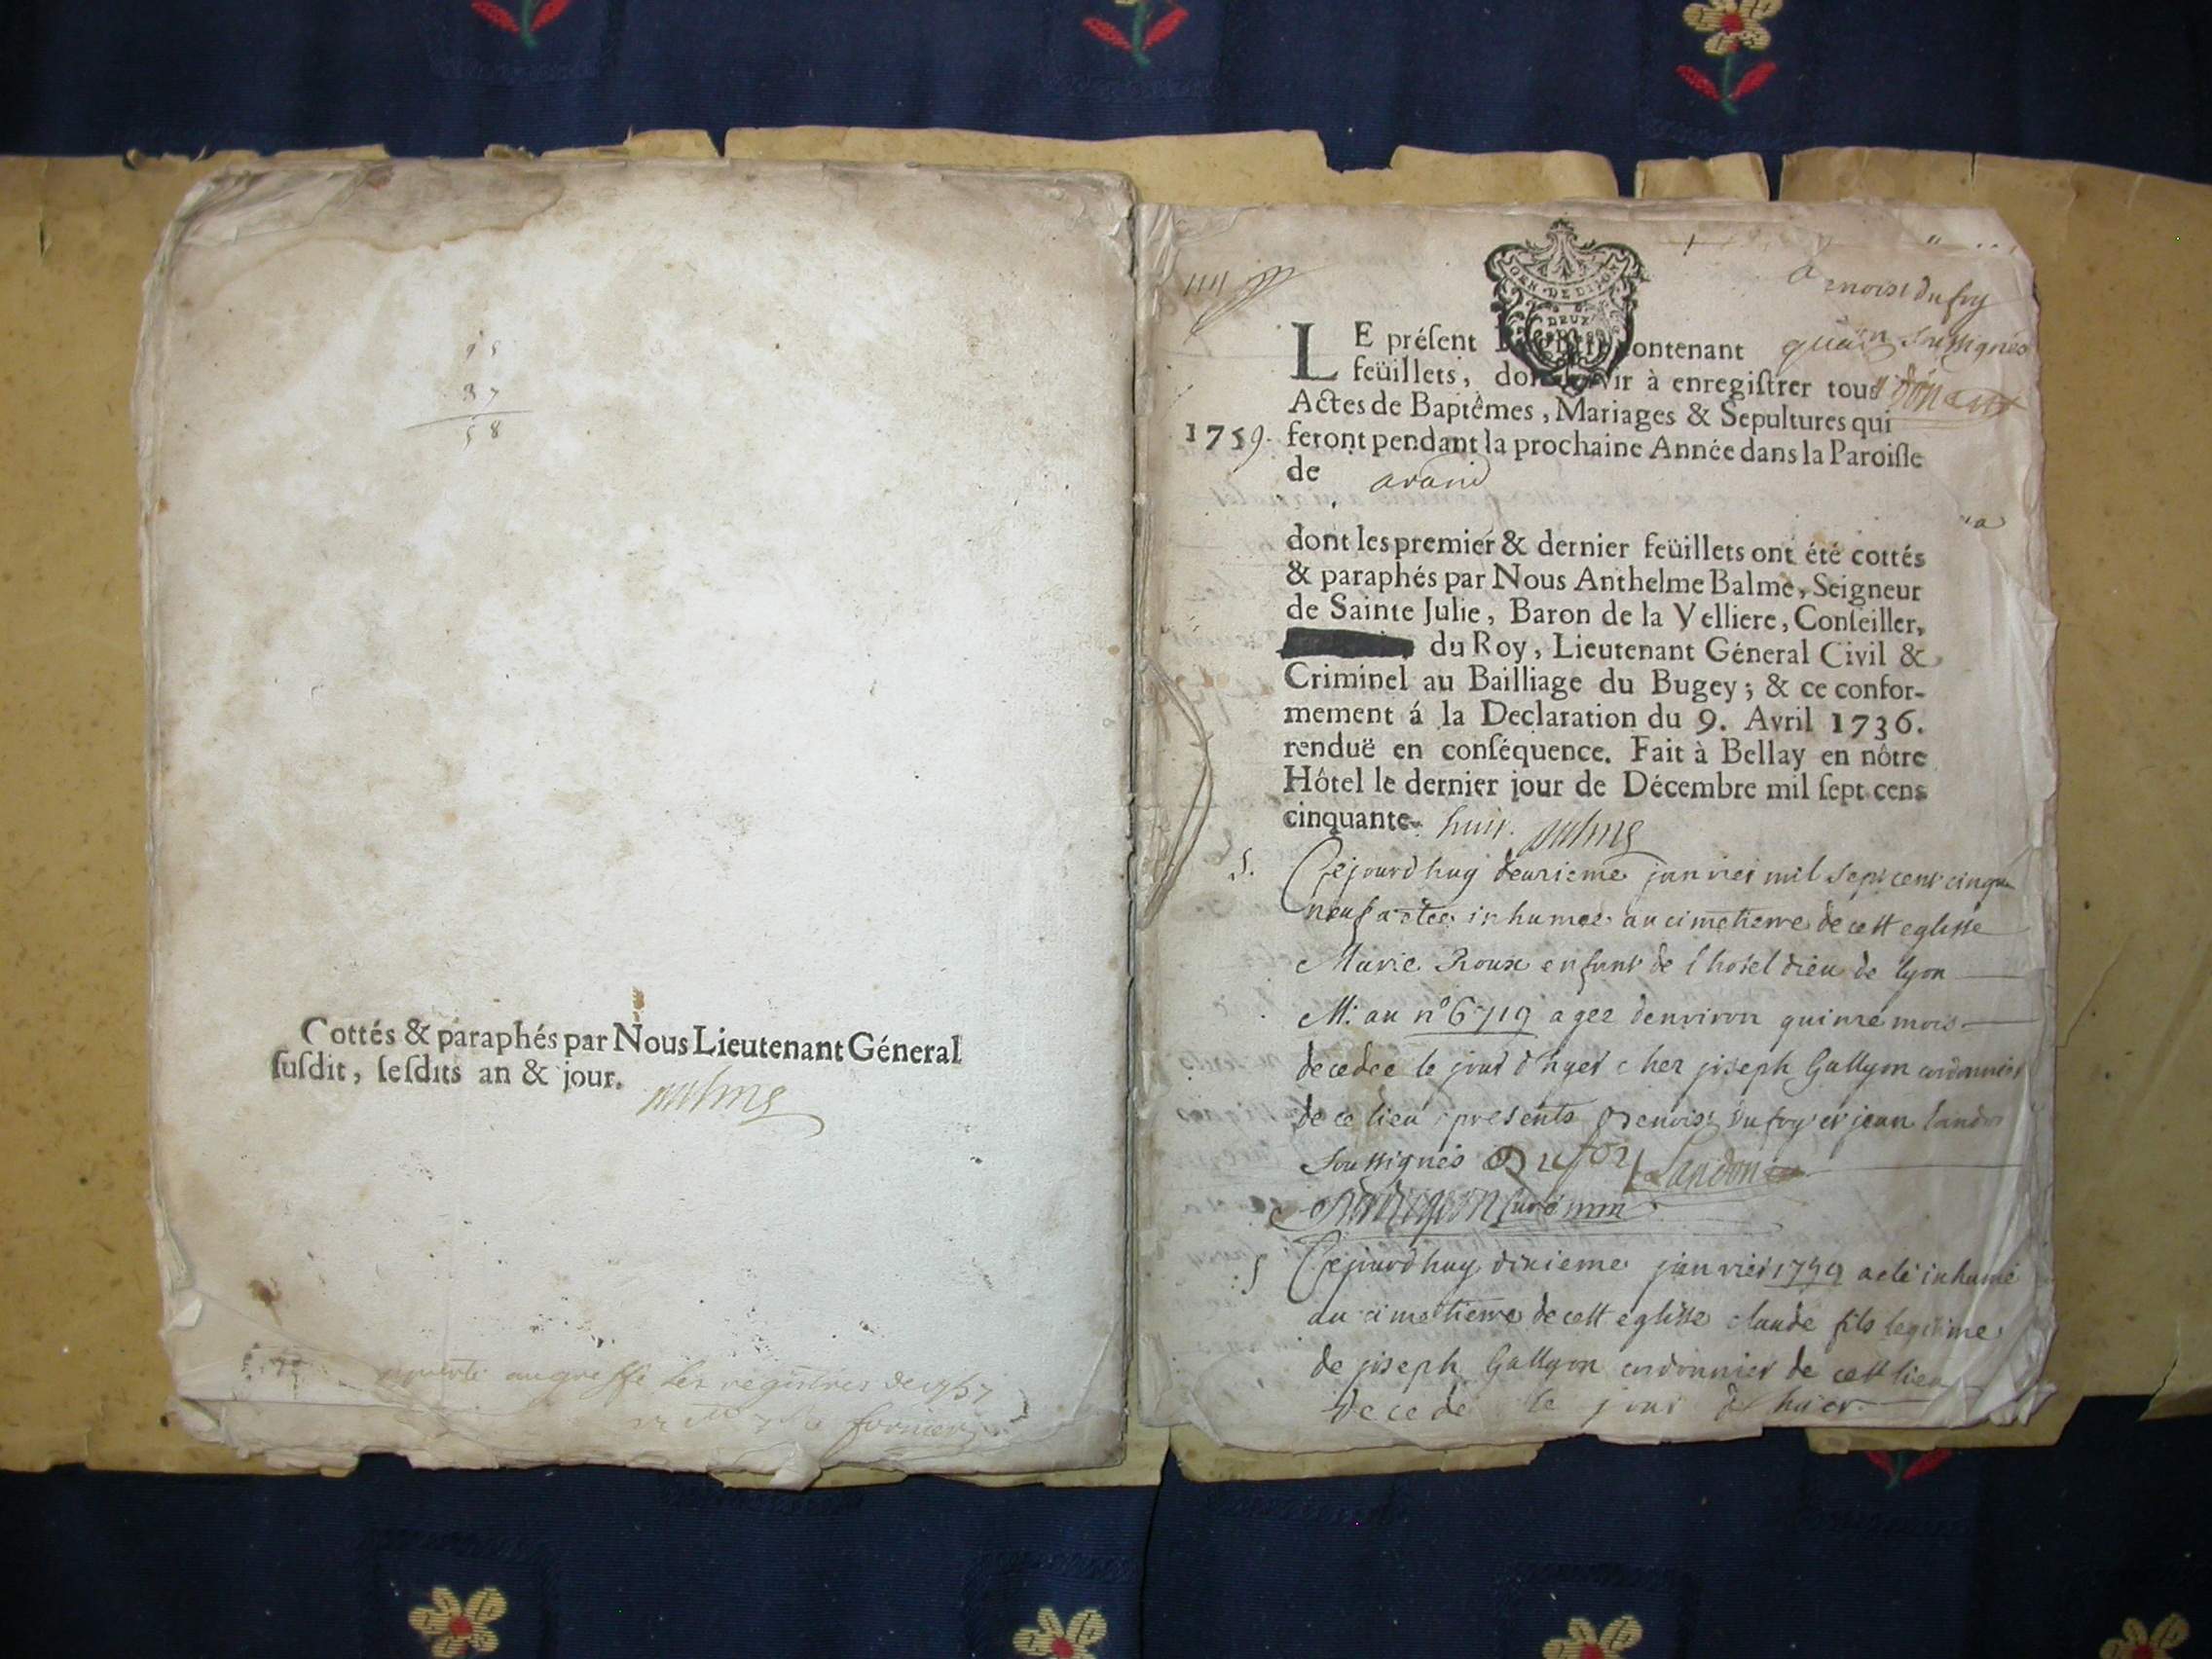 37
58
Cottés & paraphés par Nous Lieutenant Géneral
ſuſdit, ſeſdits an & jour.
les registres de 1757
GEN. DE DIJON
DEUX
LE préſent contenant
feüillets, ſervir à enregiſtrer tous
soussignés
Actes de Baptêmes, Mariages & Sepultures qui
1759. ſeront pendant la prochaine Année dans la Paroiſſe
de arand
dont les premier & dernier feüillets ont été cottés
& paraphés par Nous Anthelme Balme, Seigneur
de Sainte Julie, Baron de la Velliere, Conſeiller,
du Roy, Lieutenant Géneral Civil &
Criminel au Bailliage du Bugey; & ce confor-
mement á la Declaration du 9. Avril 1736.
renduë en conſéquence. Fait à Bellay en nôtre
Hôtel le dernier jour de Décembre mil ſept cens
cinquante- huit.
S. Cejourdhuy deuxieme janvier mil sept cent cinqu
neuf a etee inhumee au cimetierre de cett eglisse
Marie Roux enfant de l hotel dieu de lyon
M. au n° 6719 agee denviron quinze mois
decedee le jour d'hyer chez joseph Gallyon cordonnier
de ce lieu presents Benoist dufoy et jean landon
soussignés Dufoy Landon
curé
S Cejourdhuy dixieme janvier 1759 a eté inhumé
au cimettierre de cett eglisse claude fils legitime
de joseph Gallyon cordonnier de cett lieu
decedé le jour d hier